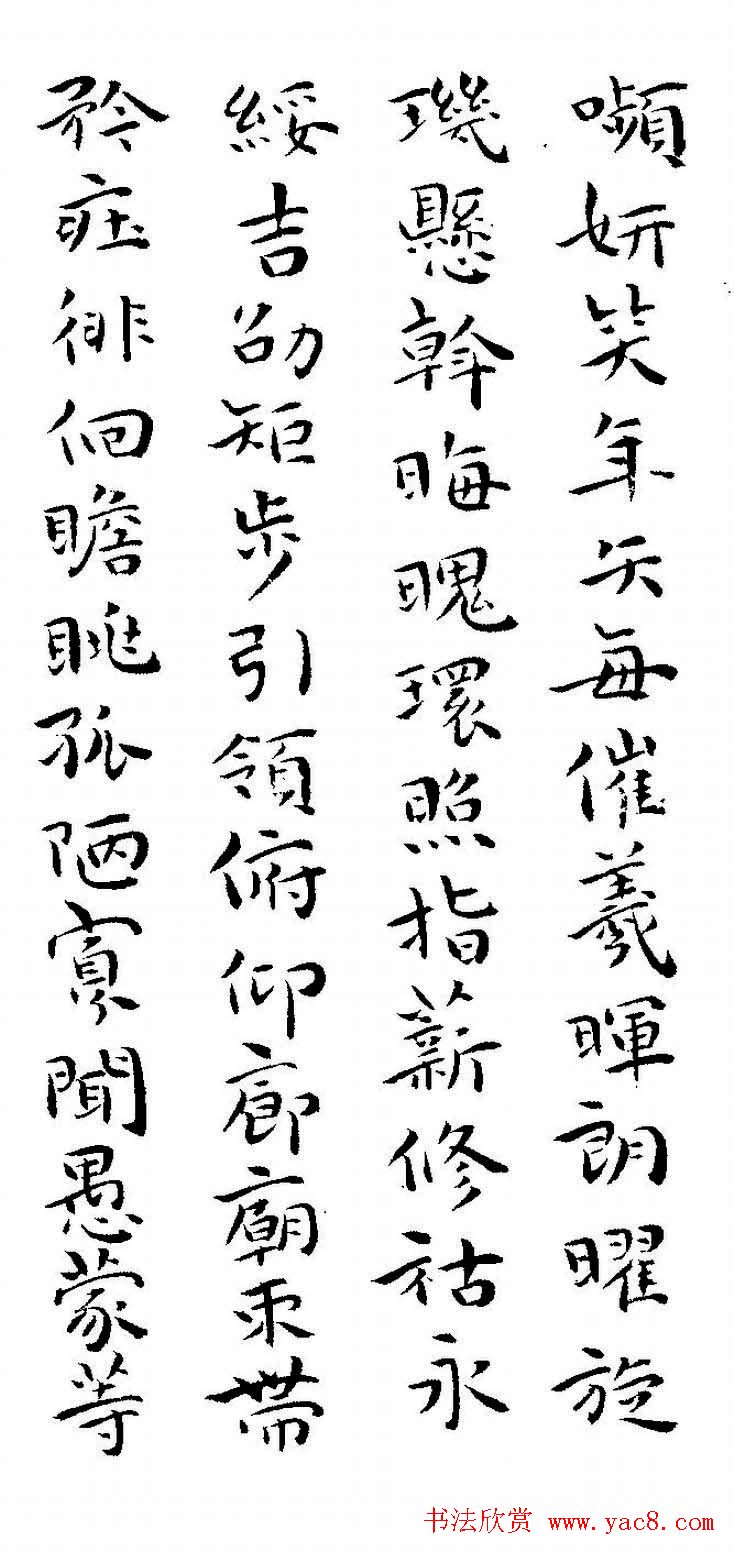 嚬妍笑年矢每催羲暉朗曜旋
璣懸斡晦魄環照指薪修祜永
綏吉劭矩步引領俯仰廊廟束帶
矜莊徘徊瞻眺孤陋寡聞愚蒙等
书法欣赏 www.yac8.com